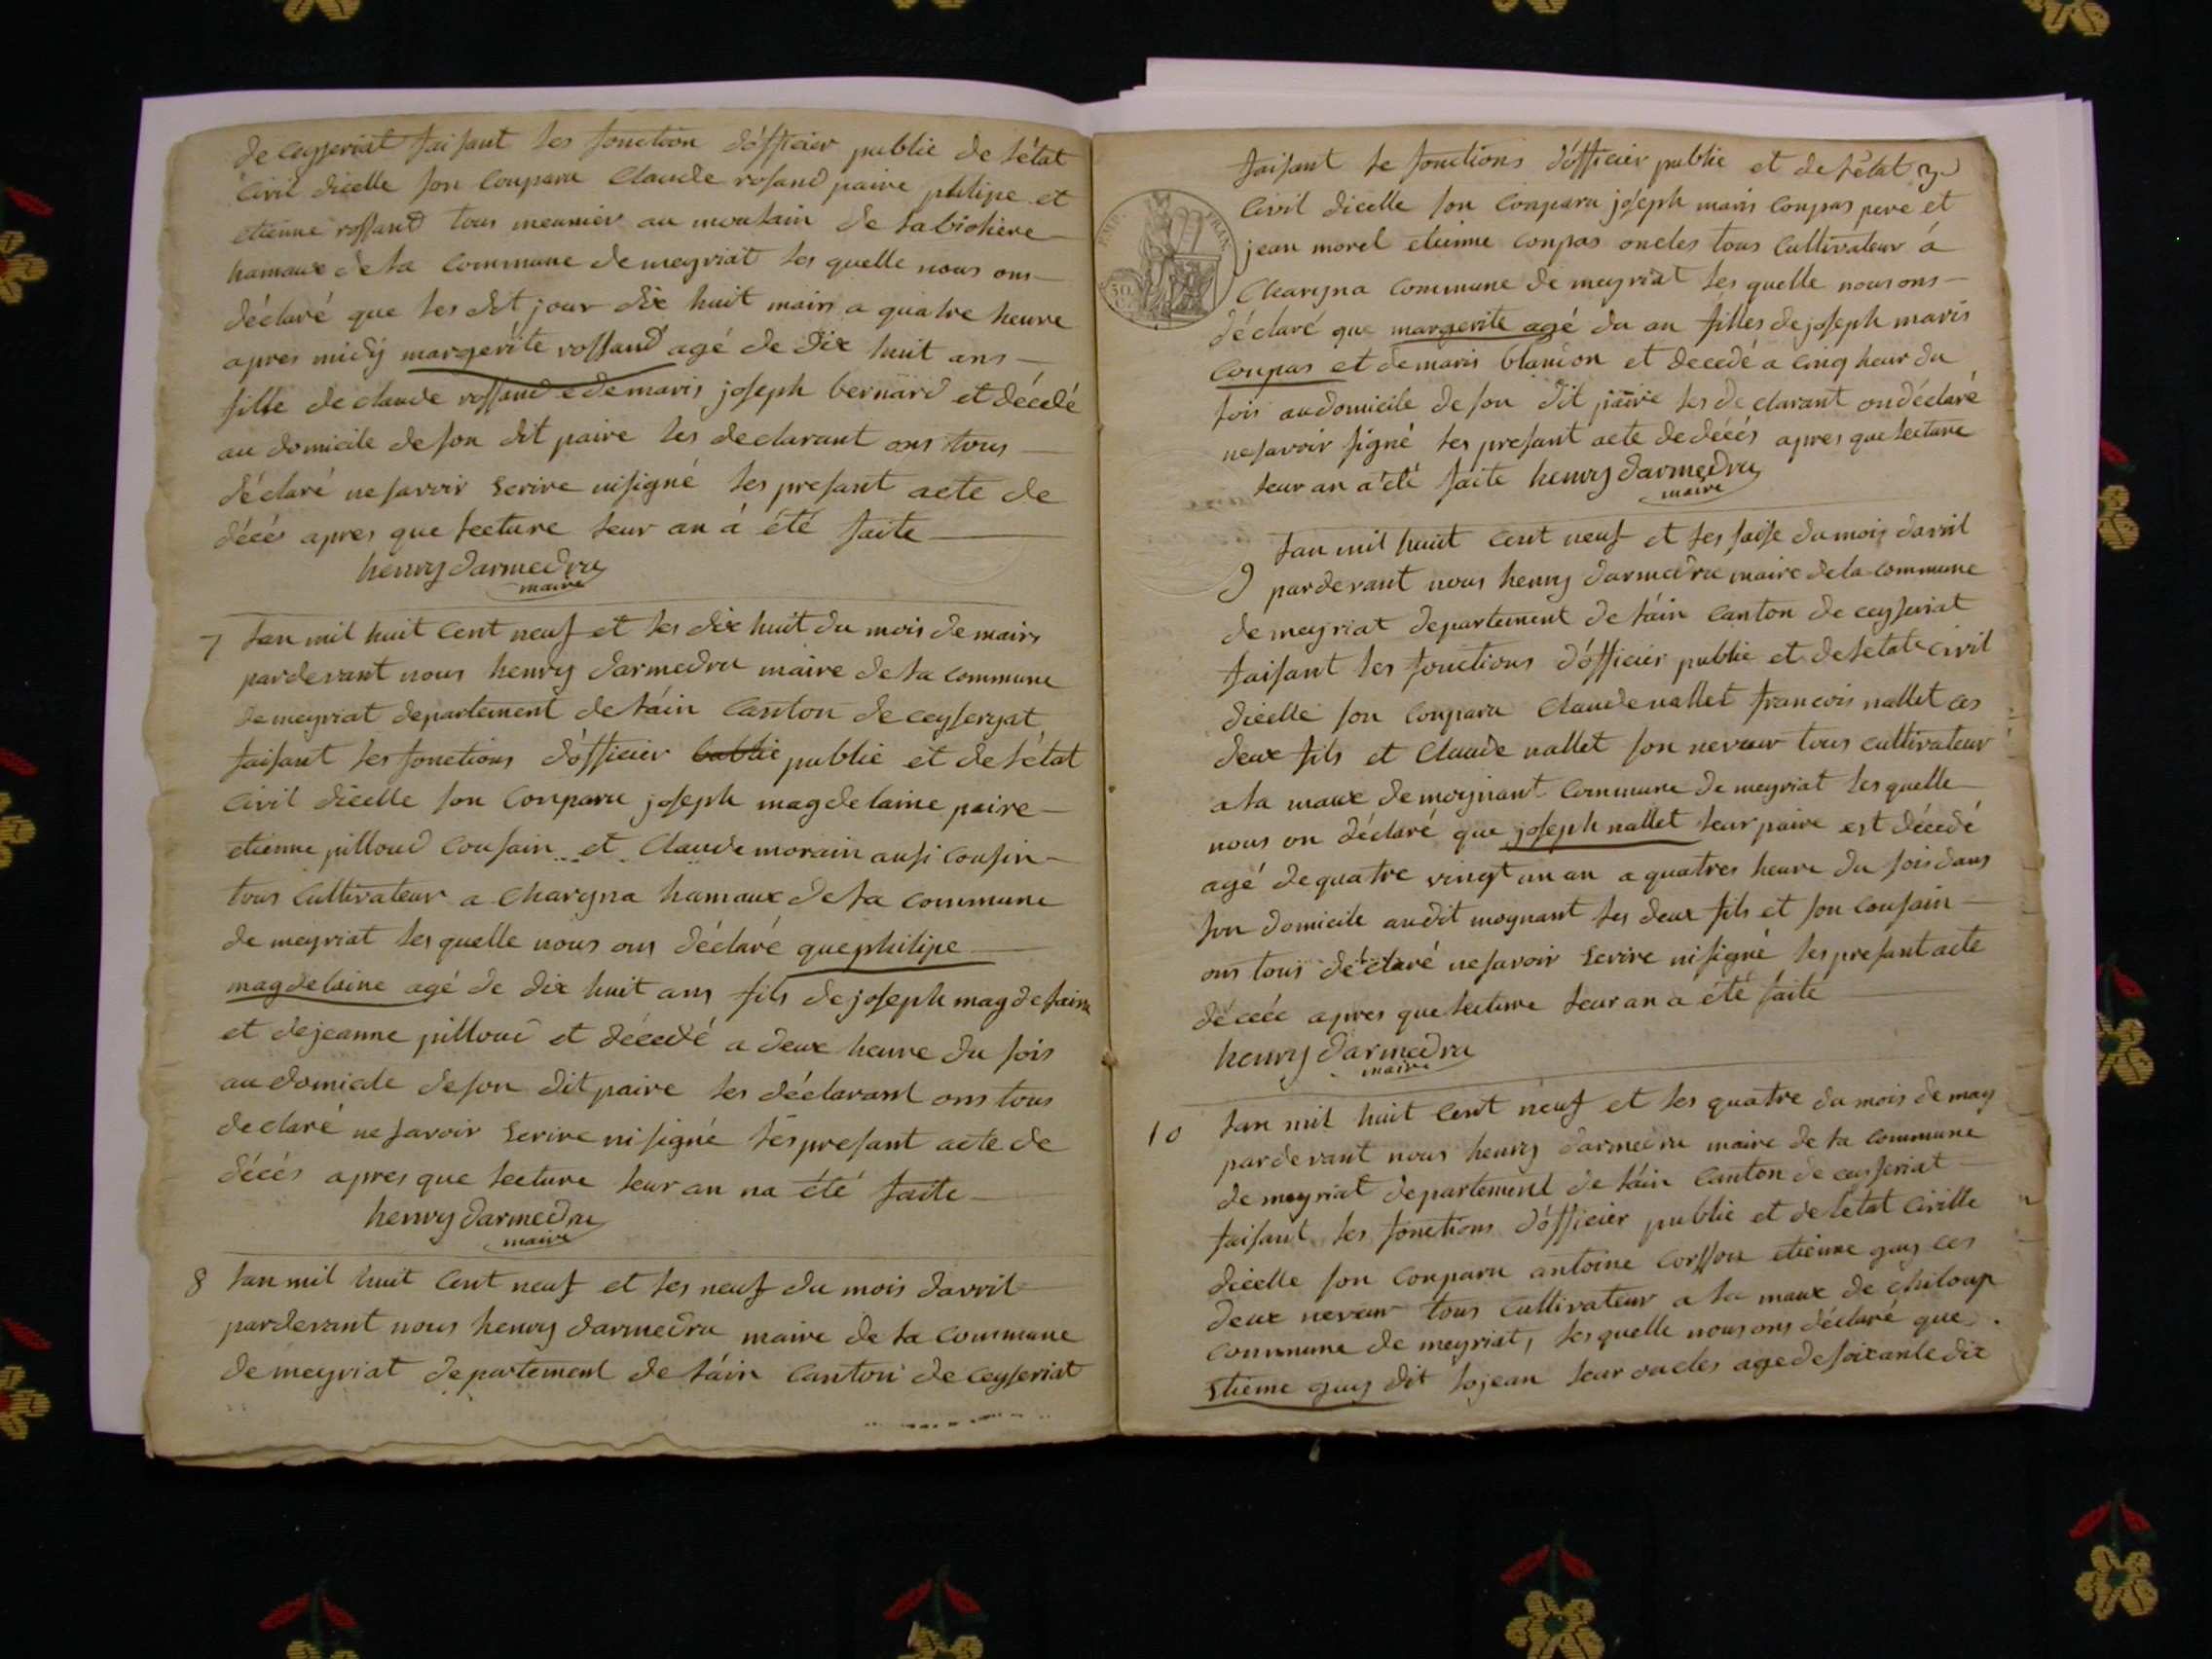 de ceyseriat faisant les fonction d'officier public de létat
civil dicelle son conparu Claude rosand paire philipe et
etienne rossand tous meunier au moulain de
hamaux de la commune de meyriat les quelle nous ons
déclaré que les dit jour dix huit mairs a quatre heure
apres midy margerite rossand agé de dix huit ans
fille de claude rossand e de maris joseph bernard et décédé
au domicile de son dit paire les declarant ons tous
déclaré ne savoir Ecrire ni signé les presant acte de
décés apres que lecture leur an á été faite
henry darmedru
maire
7 lan mil huit cent neuf et les dix huit du mois de mairs
pardevant nous henry darmedru maire de la commune
de meyriat departement de láin canton de ceyseryat
faisant les fonctions d'officier public et de létat
civil dicelle son conparu joseph magdelaine paire
etienne pilloud cousain et Claude morain ausi cousin
tous cultivateur a Charyna hamaux de la commune
de meyriat les quelle nous ons déclaré que philipe
magdelaine agé de dix huit ans fils de joseph magdelaine
et de jeanne pilloud et décedé a deux heure du sois
au domicile de son dit paire les déclarant ons tous
declaré ne savoir Ecrire ni signé les presant acte de
décés apres que lecture leur an na été faite
henry darmedru
maire
8 lan mil huit cent neuf et les neuf du mois davril
pardevant nous henry darmedru maire de la commune
de meyriat departement de láin canton de ceyseriat
faisant le fonctions d'officier public et de létat 3
EMP. FRAN.
50
civil dicelle son conparu joseph maris conpas pere et
jean morel etienne conpas oncles tous cultivateur á
Charyna commune de meyriat les quelle nous ons
déclaré que margerite agé du an filles de joseph maris
conpas et de maris blancon et decedé a cinq heur du
sois au domicile de son dit paire les declarant on déclaré
ne savoir signé les presant acte de décés apres que lecture
leur an a été faite henry darmedru
maire
9 lan mil huit cent neuf et les saise du mois davril
pardevant nous henry darmedru maire de la commune
de meyriat departement de láin canton de ceyseriat
faisant les fonctions d'officier public et de letat civil
dicelle son conparu Claude nallet francois nallet ces
deux fils et Claude nallet son neveur tous cultivateur
a la maux de moignant commune de meyriat les quelle
nous on déclaré que joseph nallet leur paire est décedé
agé de quatre vingt un an a quatres heure du sois dans
son domicile au dit moynant les deux fils et son cousain
ons tous déclaré ne savoir Ecrire ni signé les presant acte
décéc apres que lecture leur an a été faite
henry darmedru
maire
10 lan mil huit cent neuf et les quatre du mois de may
pardevant nous henry darmedru maire de la commune
de meyriat departement de láin canton de ceyseriat
faisant les fonctions d'officier public et de létat civille
dicelle son conparu antoine corsson etienne guy ces
deux neveur tous cultivateur a la maux de chiloup
commune de meyriat, les quelle nous ons déclaré que
Etienne guy dit lojean leur oncles age de soixante dix